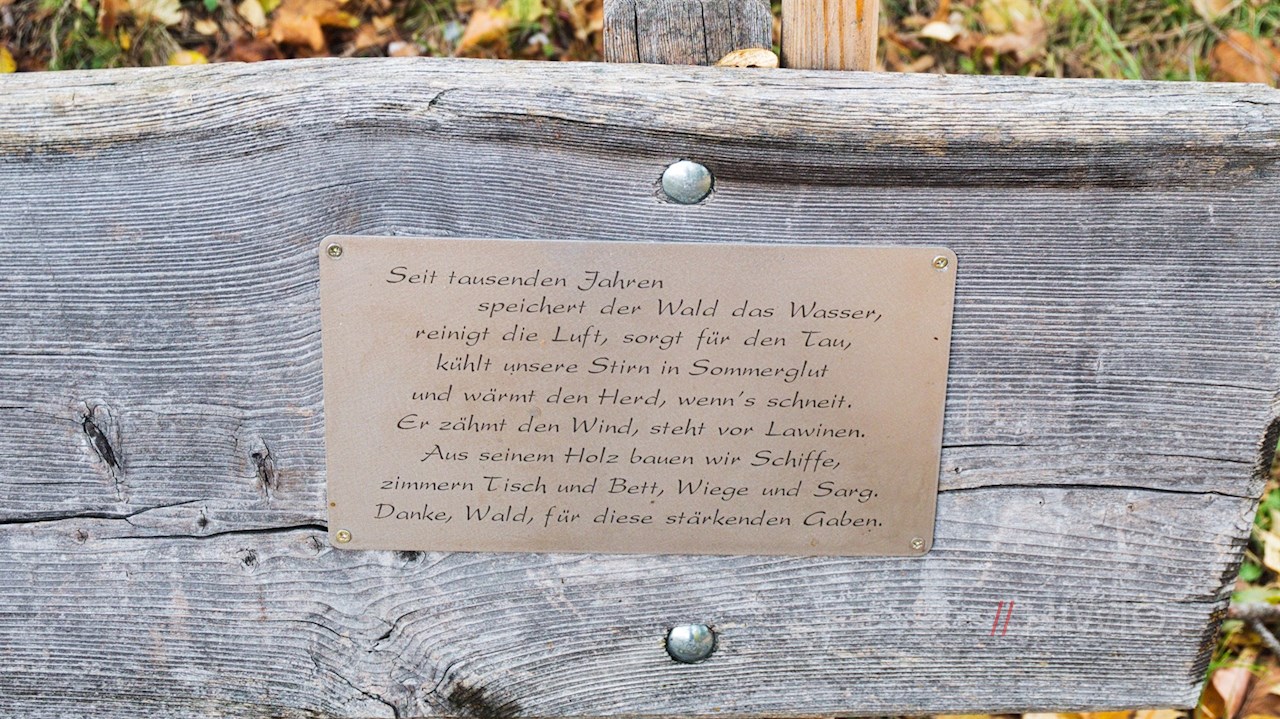 Seit tausenden Jahren
speichert der Wald das Wasser,
reinigt die Luft, sorgt für den Tau,
kühlt unsere Stirn in Sommerglut
und wärmt den Herd, wenn's schneit.
Er zähmt den Wind, steht vor Lawinen.
Aus seinem Holz bauen wir Schiffe,
zimmern Tisch und Bett, Wiege und Sarg.
Danke, Wald, für diese stärkenden Gaben.